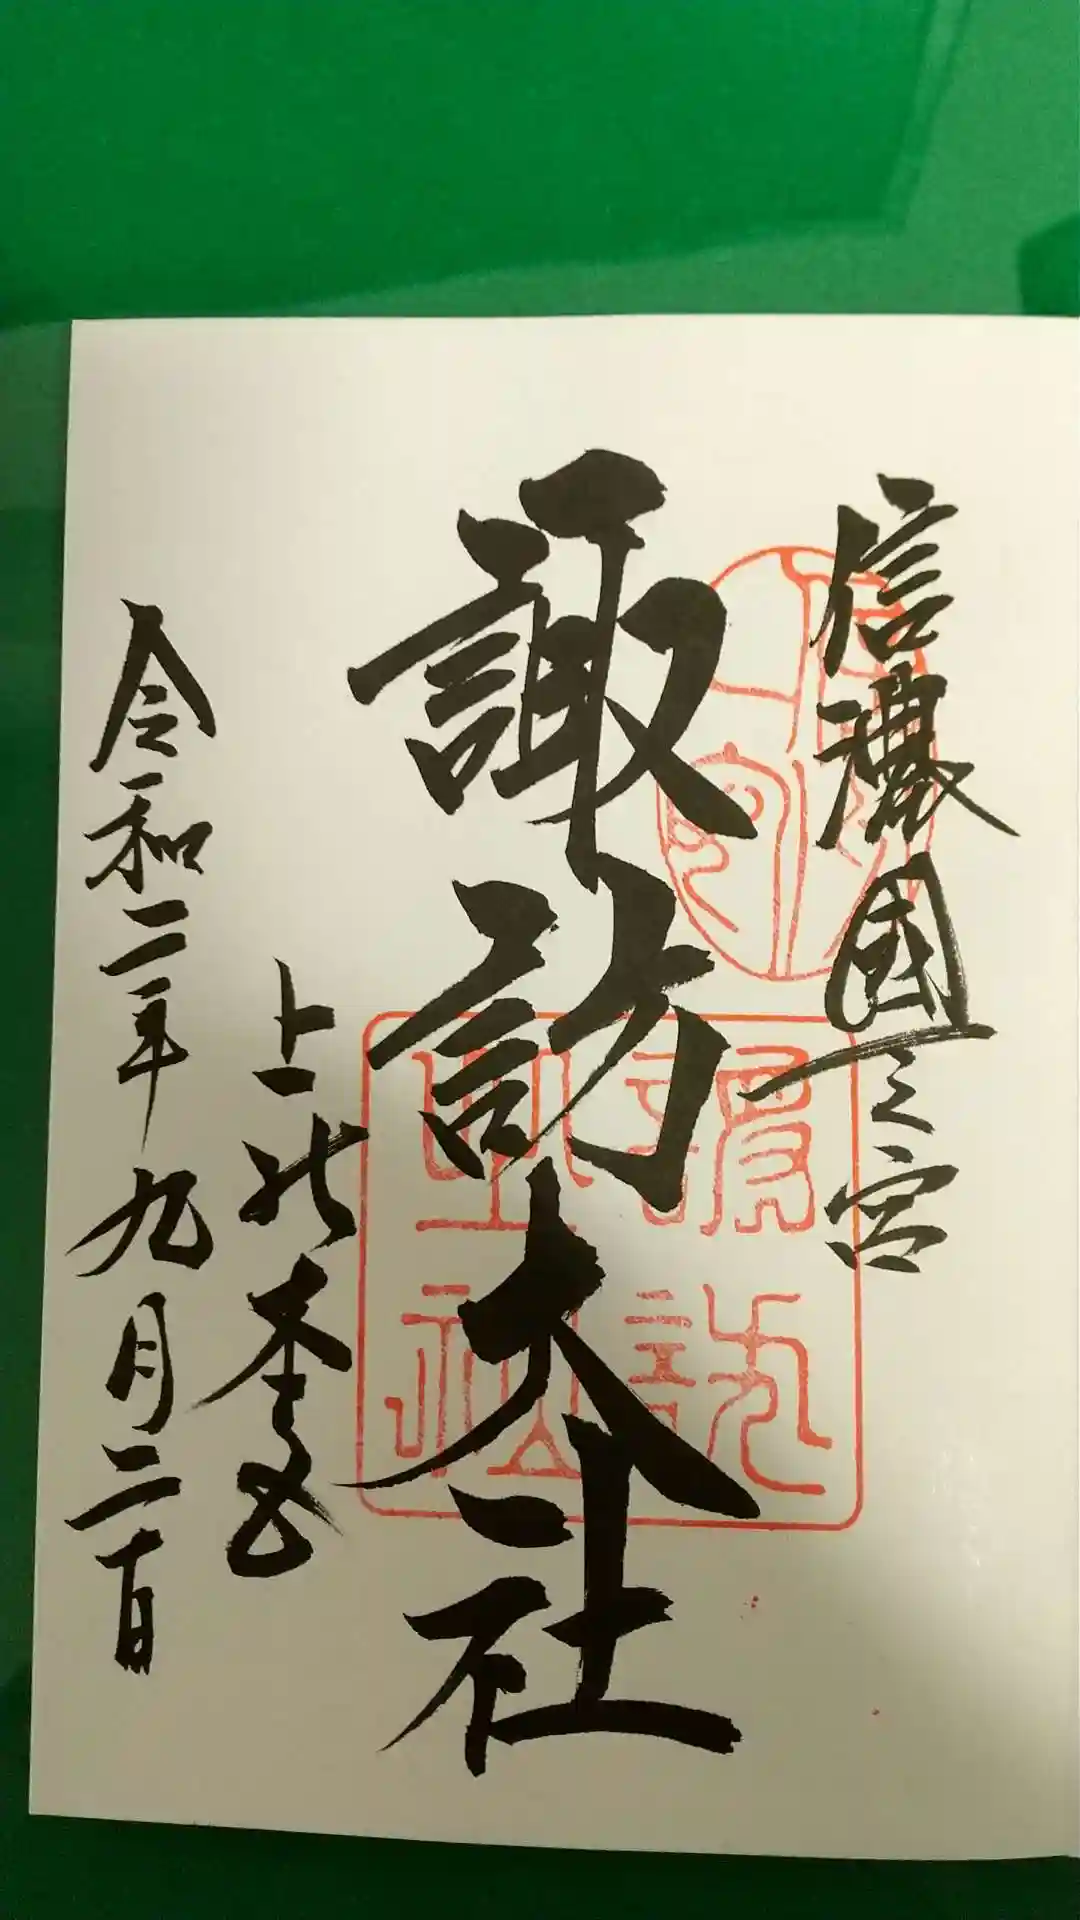 信濃國一之宮
諏訪大社
上社本宮
令和二年九月二十日